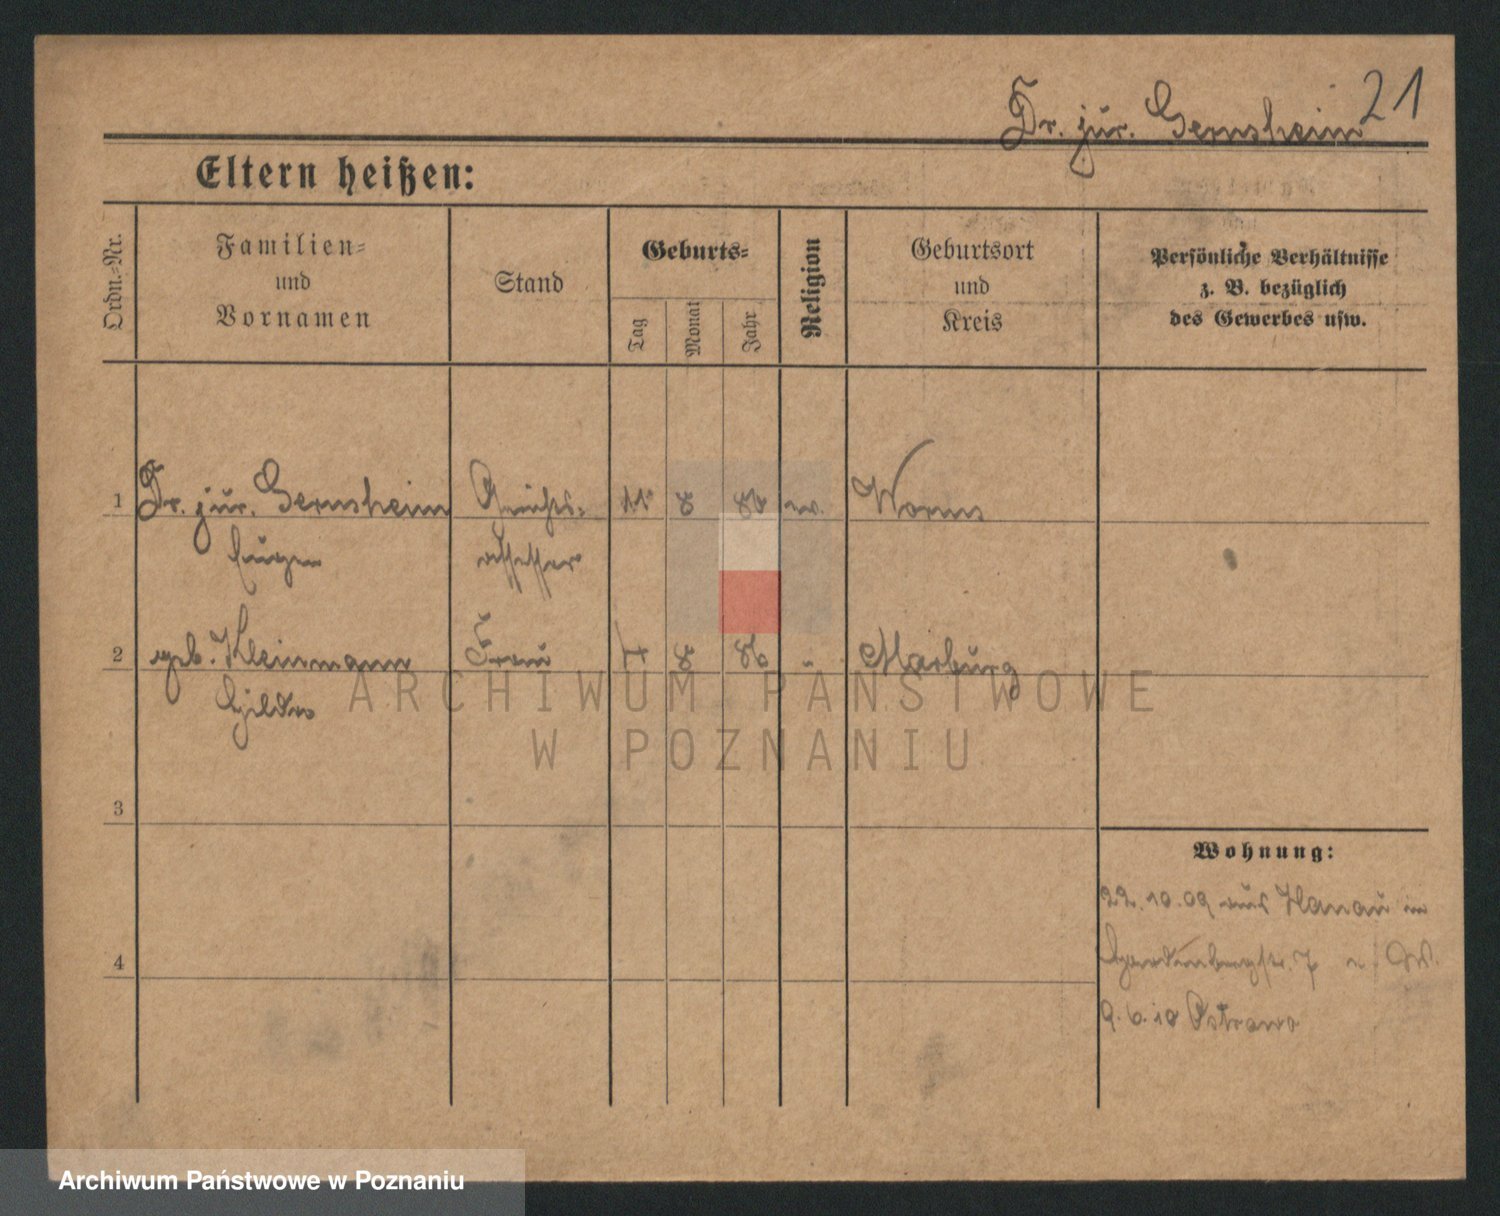 21
Dr. jur. Gernsheim
Eltern heißen:
Ordn.=Nr.
Familien=
und
Vornamen
Stand
Geburts=
Tag
Monat
Jahr
Religion
Geburtsort
und
Kreis
Persönliche Verhältnisse
z. B. bezüglich
des Gewerbes usw.
1 Dr. jur. Gernsheim Gerichts- 11 8 80 ev. Worms
Eugen assessor
2 geb. Kleinmann Frau 7 8 86 " Marburg
Hilda
3
4
Wohnung:
22.10.09 aus Hanau in
Hardenbergstr. 7
9.6.10 Ostrowo
ARCHIWUM PAŃSTWOWE
W POZNANIU
Archiwum Państwowe w Poznaniu